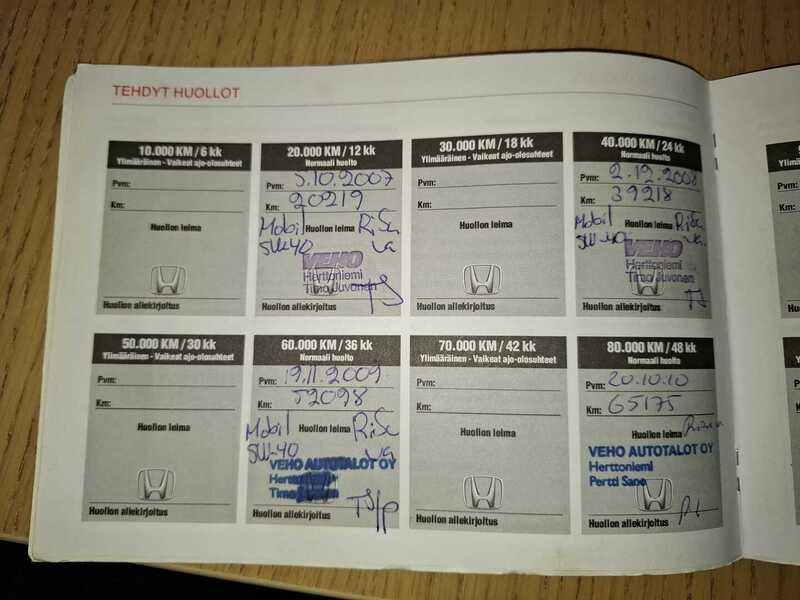 TEHDYT HUOLLOT
10.000 KM / 6 kk
Ylimääräinen - Vaikeat ajo-olosuhteet
Pvm:
Km:
Huollon leima
Huollon allekirjoitus
20.000 KM / 12 kk
Normaali huolto
Pvm: 5.10.2007
Km: 20219
Mobil Huollon leima RiSu
SW-40 va
VEHO
Herttoniemi
Timo Juvonen
Huollon allekirjoitus
30.000 KM / 18 kk
Ylimääräinen - Vaikeat ajo-olosuhteet
Pvm:
Km:
Huollon leima
Huollon allekirjoitus
40.000 KM / 24 kk
Normaali huolto
Pvm: 2.12.2008
Km: 39218
Mobil Huollon leima RiSu
SW-40 va
VEHO
Herttoniemi
Timo Juvonen
Huollon allekirjoitus
50.000 KM / 30 kk
Ylimääräinen - Vaikeat ajo-olosuhteet
Pvm:
Km:
Huollon leima
Huollon allekirjoitus
60.000 KM / 36 kk
Normaali huolto
Pvm: 19.11.2009
Km: 52098
Mobil Huollon leima RiSu
SW-40 va
VEHO AUTOTALOT OY
Timo
Huollon allekirjoitus
70.000 KM / 42 kk
Ylimääräinen - Vaikeat ajo-olosuhteet
Pvm:
Km:
Huollon leima
Huollon allekirjoitus
80.000 KM / 48 kk
Normaali huolto
Pvm: 20.10.10
Km: 65175
Huollon leima
VEHO AUTOTALOT OY
Herttoniemi
Pertti Sane
Huollon allekirjoitus